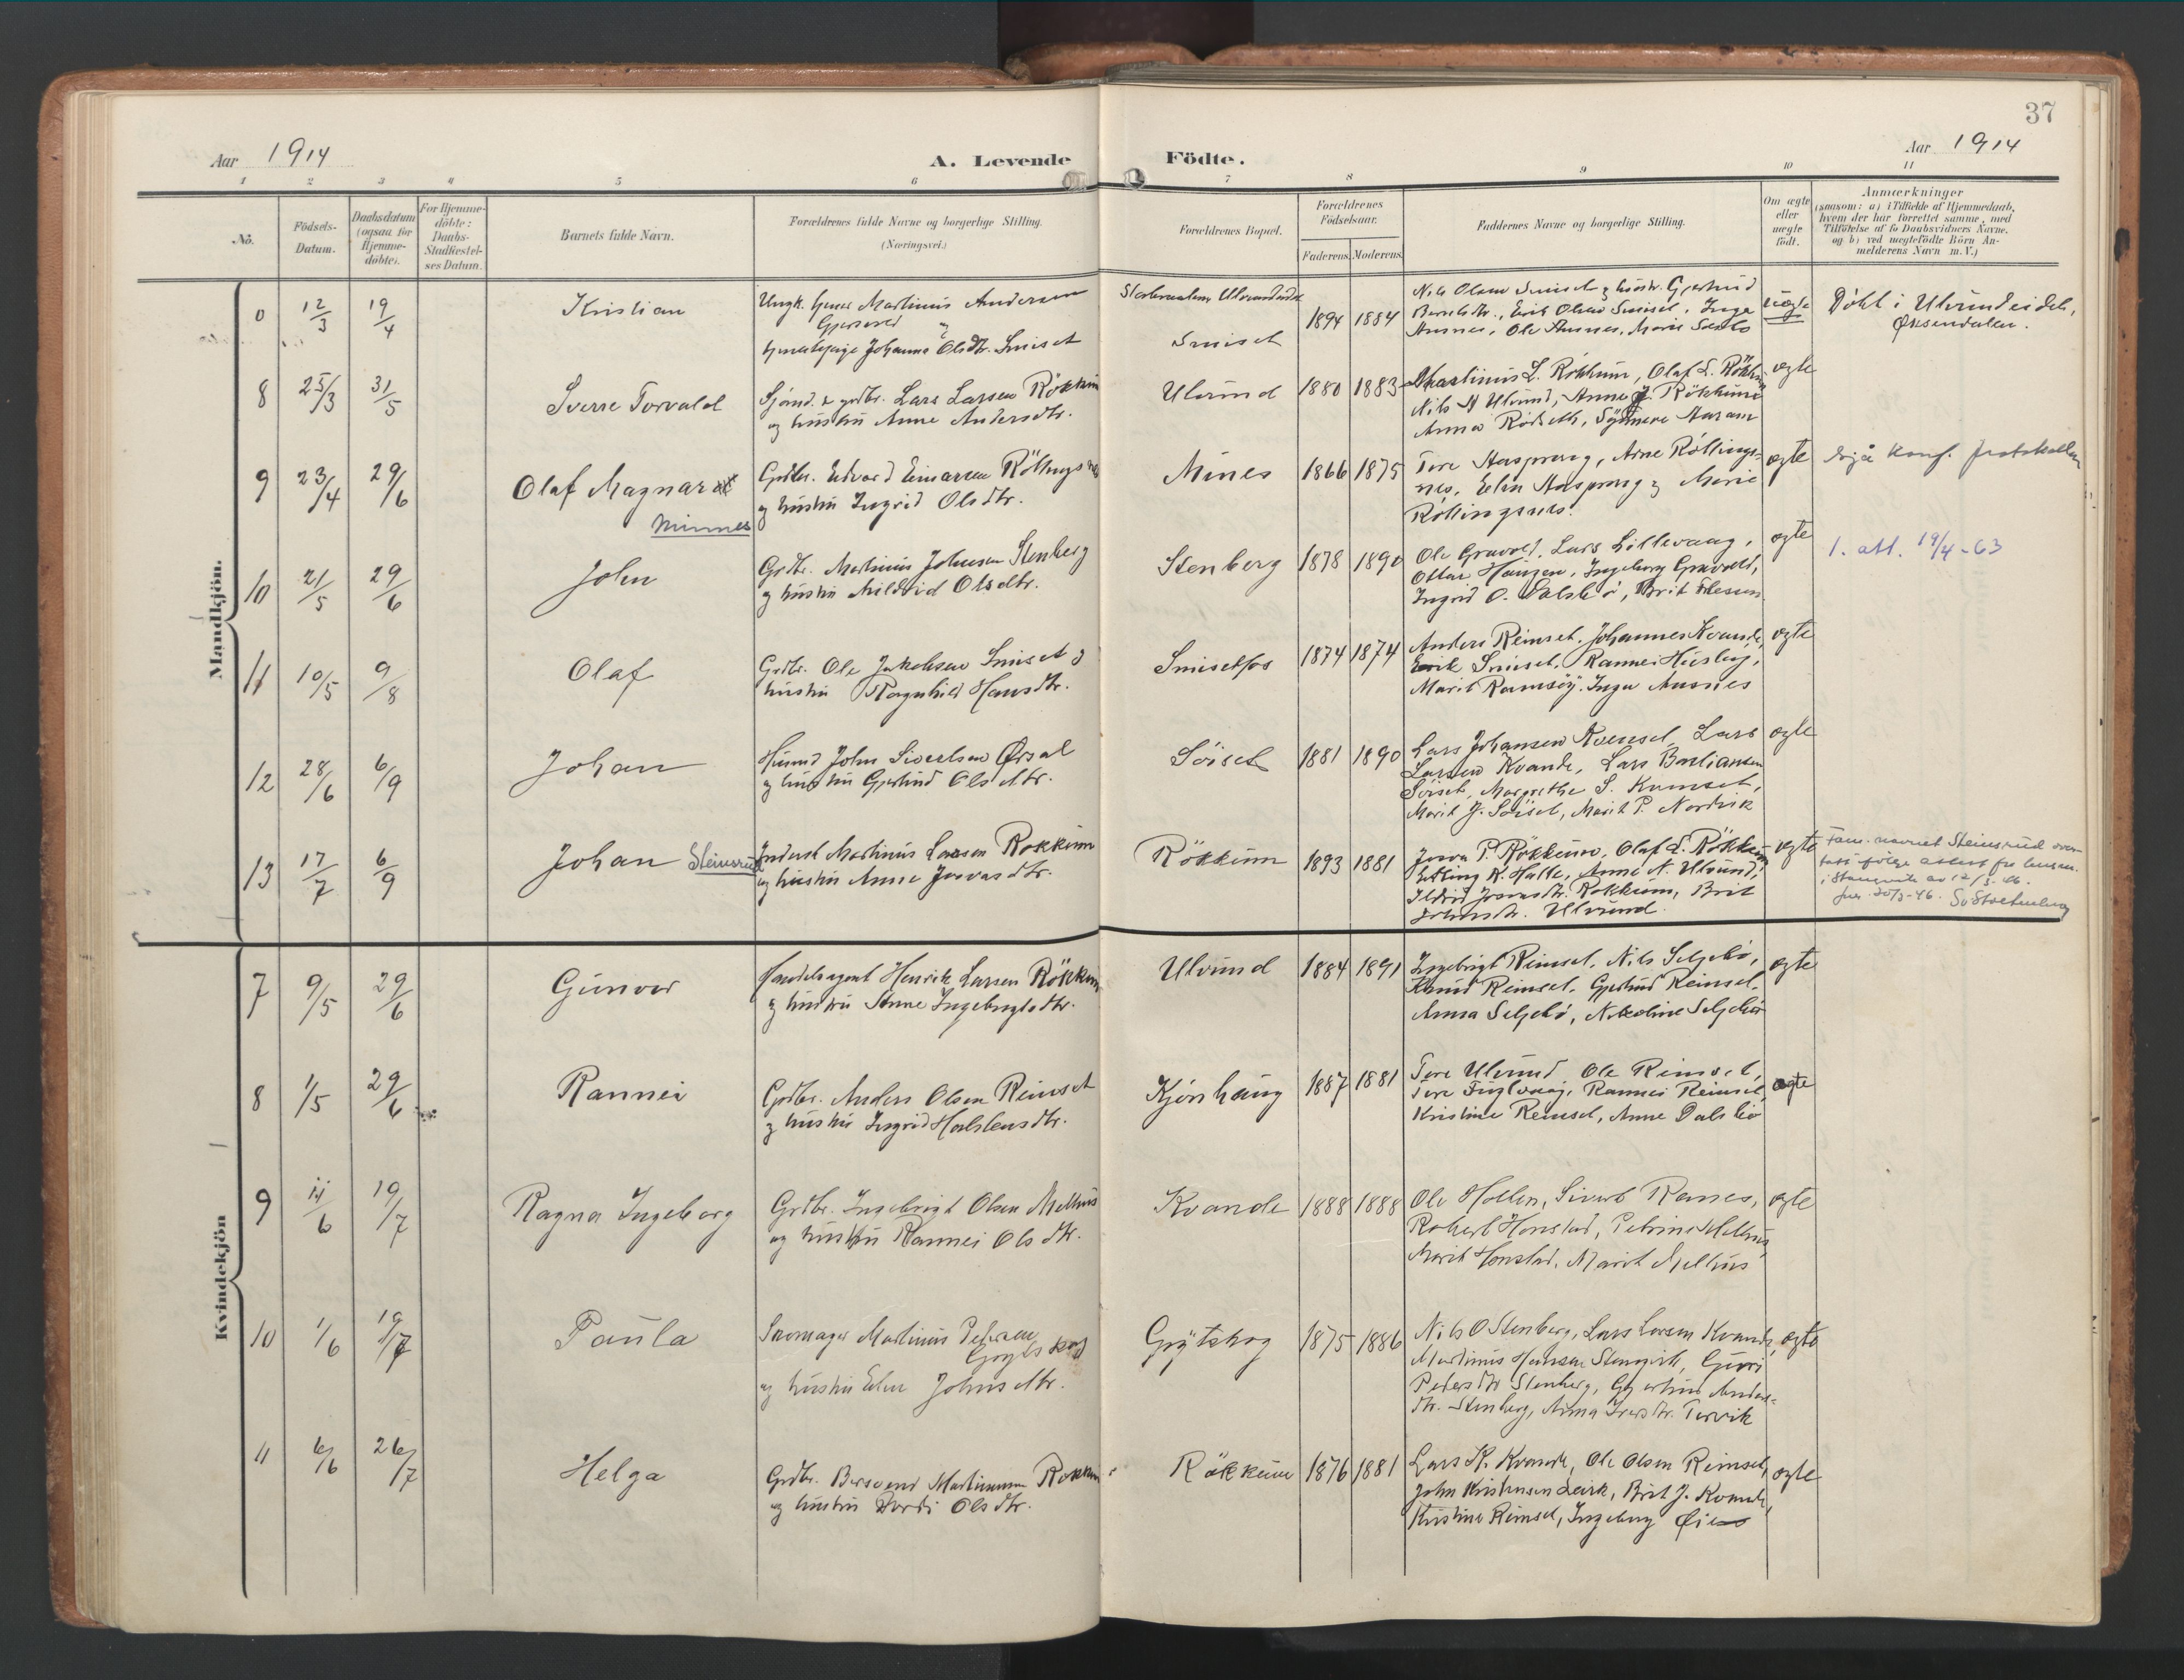 37
Aar 1914
A. Levende
Födte.
Aar 1914
1 2 3 4 5 6 7 8 9 10 11
No.
Födsels-
Datum.
Daabsdatum
(ogsaa for
Hjemme-
döbte).
For Hjemme-
döbte:
Daabs-
Stadfæstel-
ses Datum.
Barnets fulde Navn.
Forældrenes fulde Navne og borgerlige Stilling.
(Næringsvei.)
Forældrenes Bopæl.
Forældrenes
Födselsaar.
Faderens. Moderens.
Faddernes Navne og borgerlige Stilling.
Om ægte
eller
uægte
födt.
Anmærkninger
(saasom: a) i Tilfælde af Hjemmedaab,
hvem der har forrettet samme, med
Tilföielse af to Daabsvidners Navne,
og b) ved uægtefödte Börn An-
melderens Navn m. V.)
Mandkjön.
0 12/3 19/4
Kristian
Ungk. Martinus Andersen
Johanna Olsdtr. Smiset
Smiset
1894 1884
Nils Olsen Smiset
Erik Olsen Smiset, Inga
Ausnes, Ole Ausnes, Marie
uægte
Döbt i Ulvundeidet,
Øksendalen.
8 25/3 31/5
Sverre Torvald
Sjömd. & grdbr. Lars Larsen Rökkum
og hustru Anne Andersdtr.
Ulvund
1880 1883
Martinus L. Rökkum, Olaf L. Rökkum
Nils N Ulvund, Anne J. Rökkum
Anna Rödseth,
ægte
9 23/4 29/6
Olaf Magnar
Minnes
Grdbr. Edvard Einarsen Röttingsnes
og hustru Ingrid Olsdtr.
Minnes
1866 1875
Tore Aasprong, Arne Röttings-
nes, Elen Aasprong og Marie
Röttingsnes.
ægte
Sjå konf. protokollen
10 21/5 29/6
John
Grdbr. Martinus Johnsen Stenberg
og hustru Mildrid Olsdtr.
Stenberg
1878 1890
Ole Gravvold, Lars Lillevaag,
Ottar Hansen, Ingeborg Gravvold,
Ingrid O. Dalsbö, Brit
ægte
1. att. 19/4-63
11 10/5 9/8
Olaf
Grdbr. Ole Jakobsen Smiset og
hustru Ragnhild Hansdtr.
Smisetfos
1874 1874
Anders Reinset, Johannes Kvande,
Erik Smiset, Rannei Husby,
Marit Ramsöy. Inga Ausnes
ægte
12 28/6 6/9
Johan
Husmd John Sivertsen Ørsal
og hustru Gjertrud Olsdtr.
Söiset
1881 1890
Lars Johansen Kvenset, Lars
Larsen Kvande, Lars Bastiansen
Söiset, Margrethe S. Kvenset,
Marit J. Söiset, Marit P. Nordvik
ægte
13 17/7 6/9
Johan Steinsrud
Inderst Martinus Larsen Rökkum
og hustru Anne Jonasdtr.
Rökkum
1893 1881
P. Rökkum, Olaf L. Rökkum
Erling K. Halle, Anne N. Ulvund,
Ildrid Rökkum, Brit
Johnsdtr. Ulvund.
ægte
Fam. navnet Steinsrud over-
tatt ifölge attest fra lensm.
i Stangvik av 12/3-46.
30/3-46. Stoltenberg
Kvindekjön
7 9/5 29/6
Gunvor
Handelsagent Henrik Larsen Rökkum
og hustru Anne Ingebrigtsdtr.
Ulvund
1884 1891
Ingebrigt Reinset, Nils Seljebö,
Knud Reinset, Gjertrud Reinset,
Anna Seljebö, Nikoline Seljebö
ægte
8 1/5 29/6
Rannei
Grdbr. Anders Olsen Reinset
og hustru Ingrid Halstensdtr.
Kjönhaug
1887 1881
Tore Ulvund, Ole Reinset,
Tore Fuglvaag, Rannei Reinset,
Kristine Reinset, Anne Dalsbö
ægte
9 11/6 19/7
Ragna Ingeborg
Grdbr. Ingebrigt Olsen Melhus
og hustru Rannei Olsdtr.
Kvande
1888 1888
Ole Hollen, Sivert Ranes,
Robert Honstad, Petrine Melhus,
Marit Honstad, Marit Melhus
ægte
10 1/6 19/7
Paula
Skomager Martinus Petersen
Gröytskog
og hustru Elen Johnsdtr.
Gröytskog
1875 1886
Nils O Stenberg, Lars Larsen Kvande,
Martinus Hansen Stangvik, Guri
Pedersdtr Stenberg, Gjertrud Anders-
dtr. Stenberg, Anna Iversdtr. Torvik
ægte
11 6/6 26/7
Helga
Grdbr. Bersvend Martinussen Rökkum
og hustru Dordi Olsdtr.
Rökkum
1876 1881
Lars K. Kvande, Ole Olsen Reinset,
John Kristensen Leirk, Brit J. Kvande,
Kristine Reinset, Ingeborg Øien
ægte